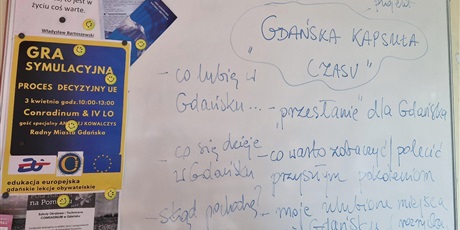 życiu coś warte.
Władysław Bartoszewski
GRA
SYMULACYJNA
PROCES DECYZYJNY UE
3 kwietnia godz.10:00-13:00
Conradinum & IV LO
gość specjalny KOWALCZYS
Radny Miasta Gdańska
edukacja europejska
gdańskie lekcje obywatelskie
na Pom
CONRADINUM w Gdańsku
"GDAŃSKA KAPSUŁA
CZASU"
- co lubię w
Gdańsku...
- co się dzieje
w Gdańsku
- skąd pochodzę?
- "przesłanie" dla Gdańska
- co warto zobaczyć/polecić
przyszłym pokoleniom
- moje ulubione miejsca
w Gdańsku